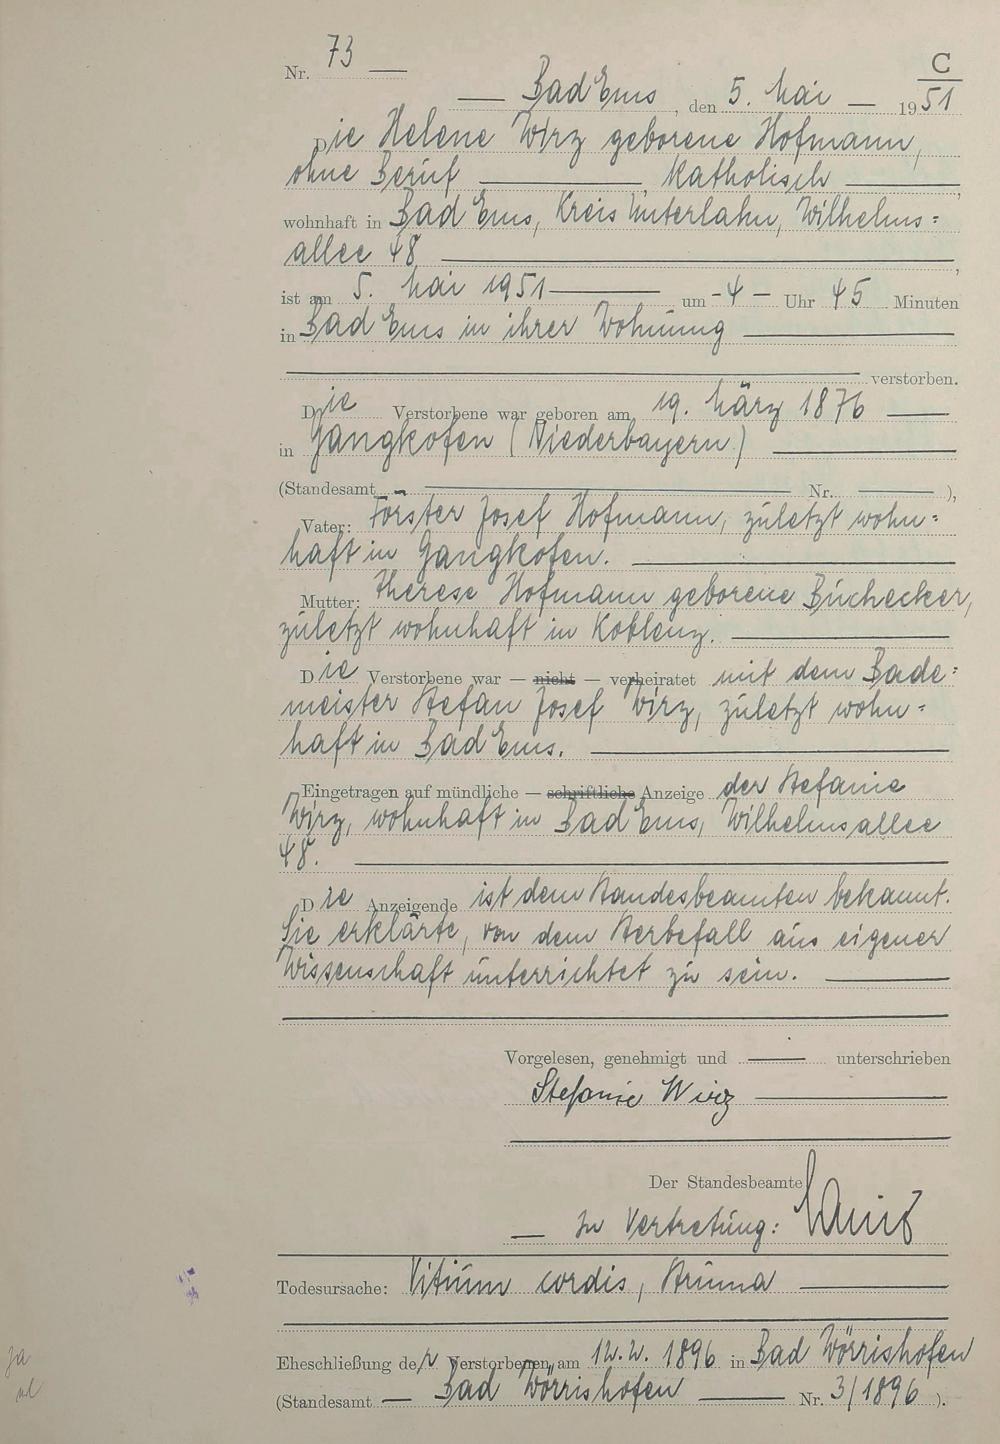 C
Nr. 73
Bad Ems, den 5. Mai 1951
Die Helene Wirz geborene Hofmann,
ohne Beruf, Katholisch,
wohnhaft in Bad Ems, Kreis Unterlahn, Wilhelms=
allee 48,
ist am 5. Mai 1951 um -4- Uhr 45 Minuten
in Bad Ems in ihrer Wohnung
verstorben.
Die Verstorbene war geboren am 19. März 1876
in Gangkofen (Niederbayern)
(Standesamt - Nr. ),
Vater: Förster Josef Hofmann, zuletzt wohn=
haft in Gangkofen.
Mutter: Therese Hofmann geborene Buchecker,
zuletzt wohnhaft in Koblenz.
Die Verstorbene war — nicht — verheiratet mit dem Bade=
meister Stefan Josef Wirz, zuletzt wohn=
haft in Bad Ems.
Eingetragen auf mündliche — schriftliche Anzeige der Stefanie
Wirz, wohnhaft in Bad Ems, Wilhelmsallee
48.
Die Anzeigende ist dem Standesbeamten bekannt.
Sie erklärte, von dem Sterbefall aus eigener
Wissenschaft unterrichtet zu sein.
Vorgelesen, genehmigt und unterschrieben
Stefanie Wirz
Der Standesbeamte
In Vertretung:
Todesursache: Vitium cordis, Struma
Eheschließung der Verstorbenen am 12.2. 1896 in Bad Wörrishofen
(Standesamt Bad Wörrishofen Nr. 3/1896).